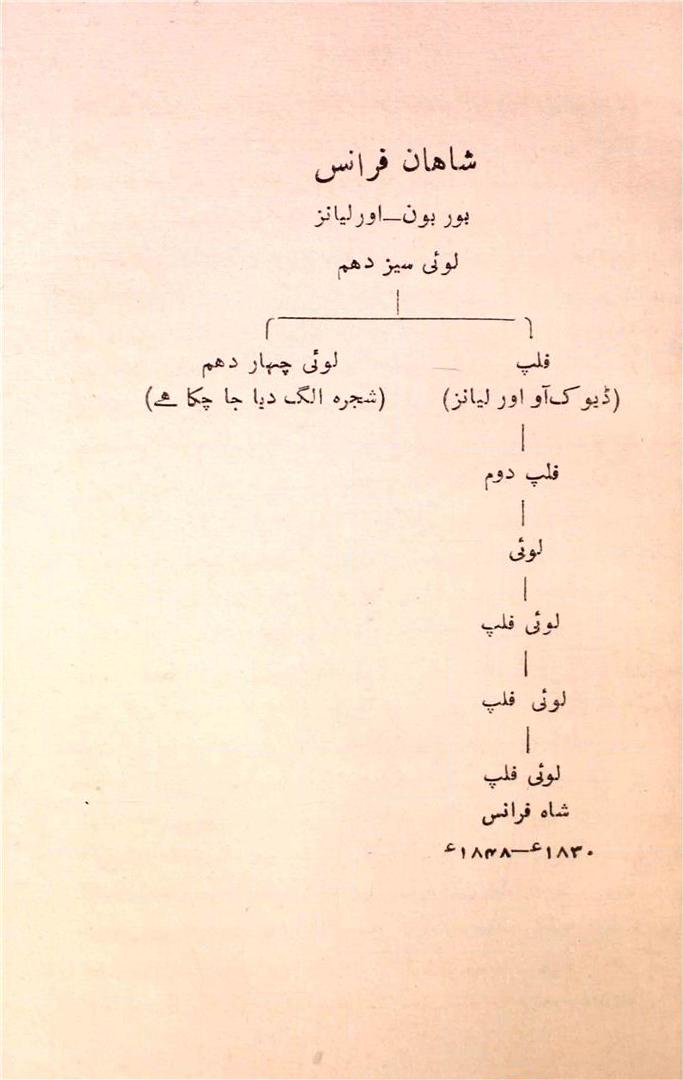 شاھان فرانس
بور بون—اورلیانز
لوئی سیز دھم
فلپ
لوئی چہار دھم
(ڈیوک آو اور لیانز)
(شجرہ الگ دیا جا چکا ھے)
فلپ دوم
لوئی
لوئی فلپ
لوئی فلپ
لوئی فلپ
شاہ فرانس
۱۸۳۰ء—۱۸۴۸ء